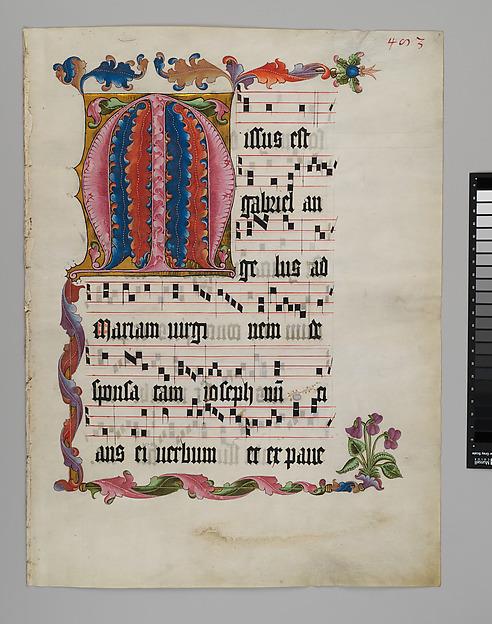 493
Missus est
gabriel an
ge lus ad
Mariam uirgi nem de
sponsa tam ioseph nū ci
ans ei uerbum et ex paue